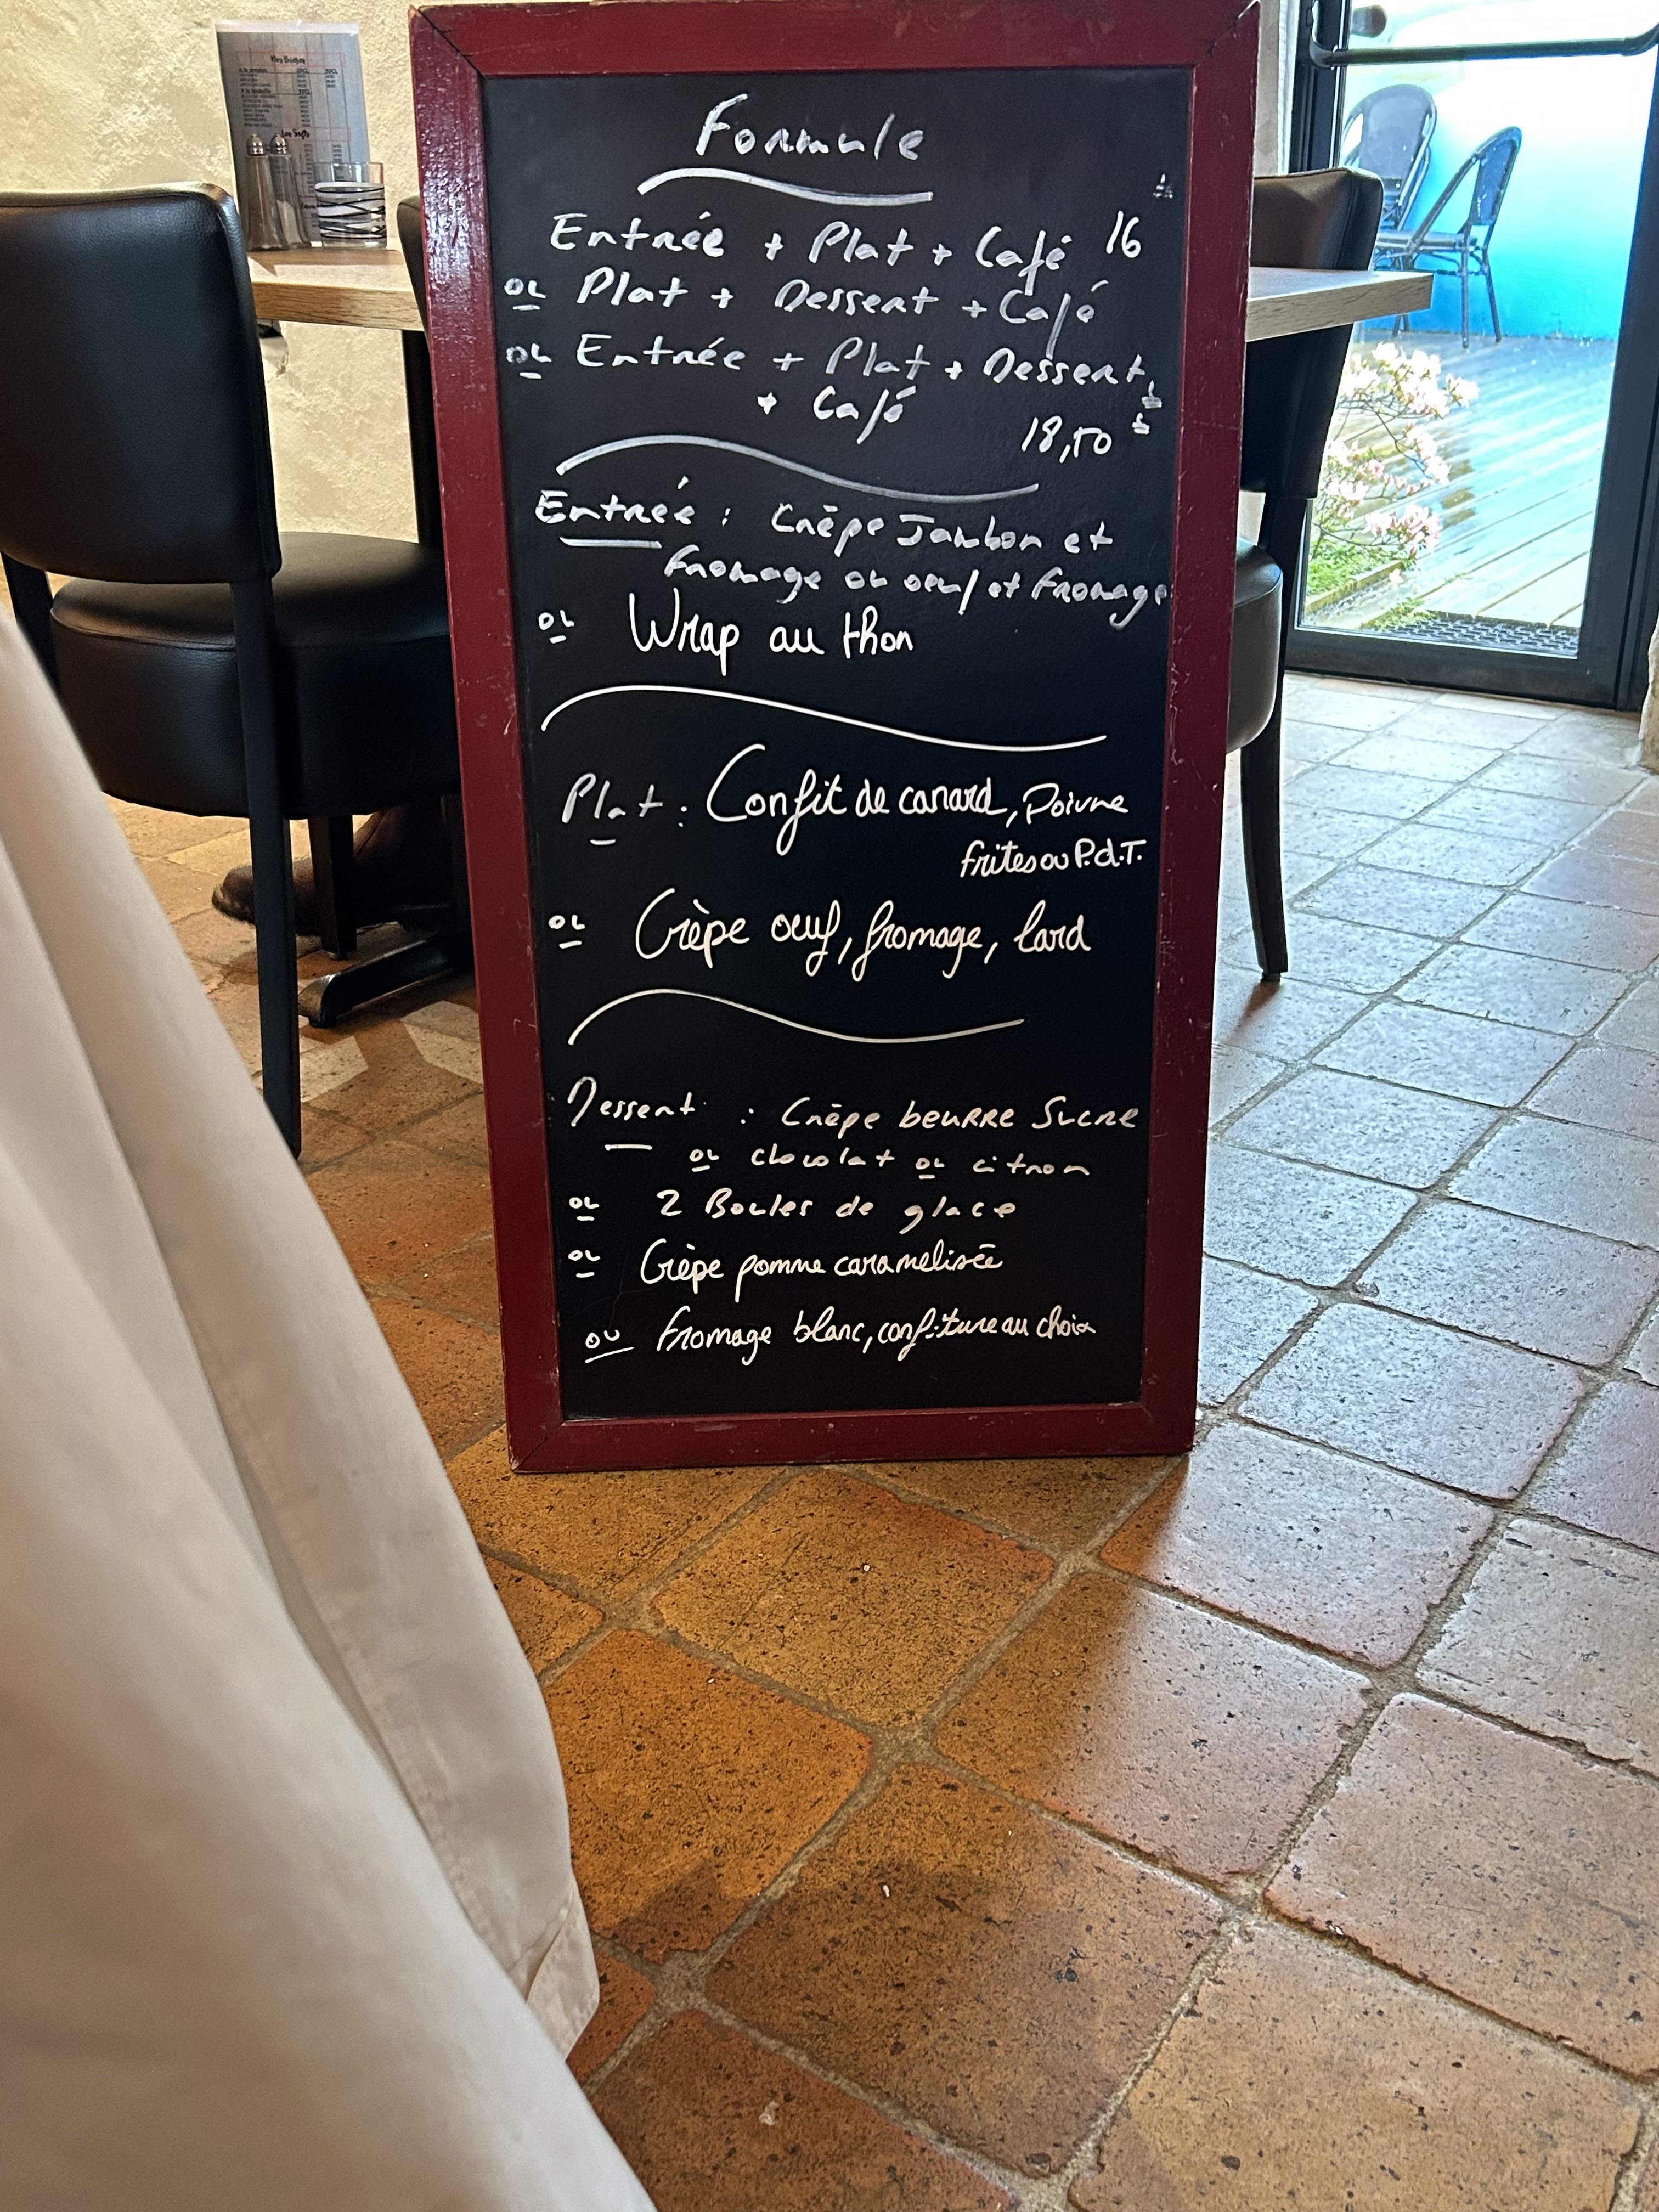 Nos Bières
Formule
Entrée + Plat + Café 16
ou Plat + Dessert + Café
ou Entrée + Plat + Dessert
+ Café 18,50
Entrée : Crêpe Jambon et
fromage ou oeuf et fromage
ou Wrap au thon
Plat : Confit de canard, Poivre
frites ou P.d.T.
ou Crèpe oeuf, fromage, lard
Dessert : Crêpe beurre Sucre
ou chocolat ou citron
ou 2 Boules de glace
ou Crèpe pomme caramelisée
ou fromage blanc, confiture au choix